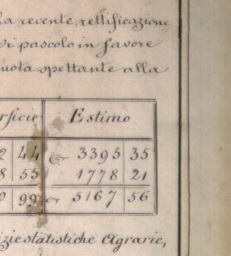 la recente rettificazione
di pascolo in favore
uota spettante alla
rficie Estimo
2 44 3395 35
8 55 1778 21
0 99 5167 56
izie statistiche agrarie,